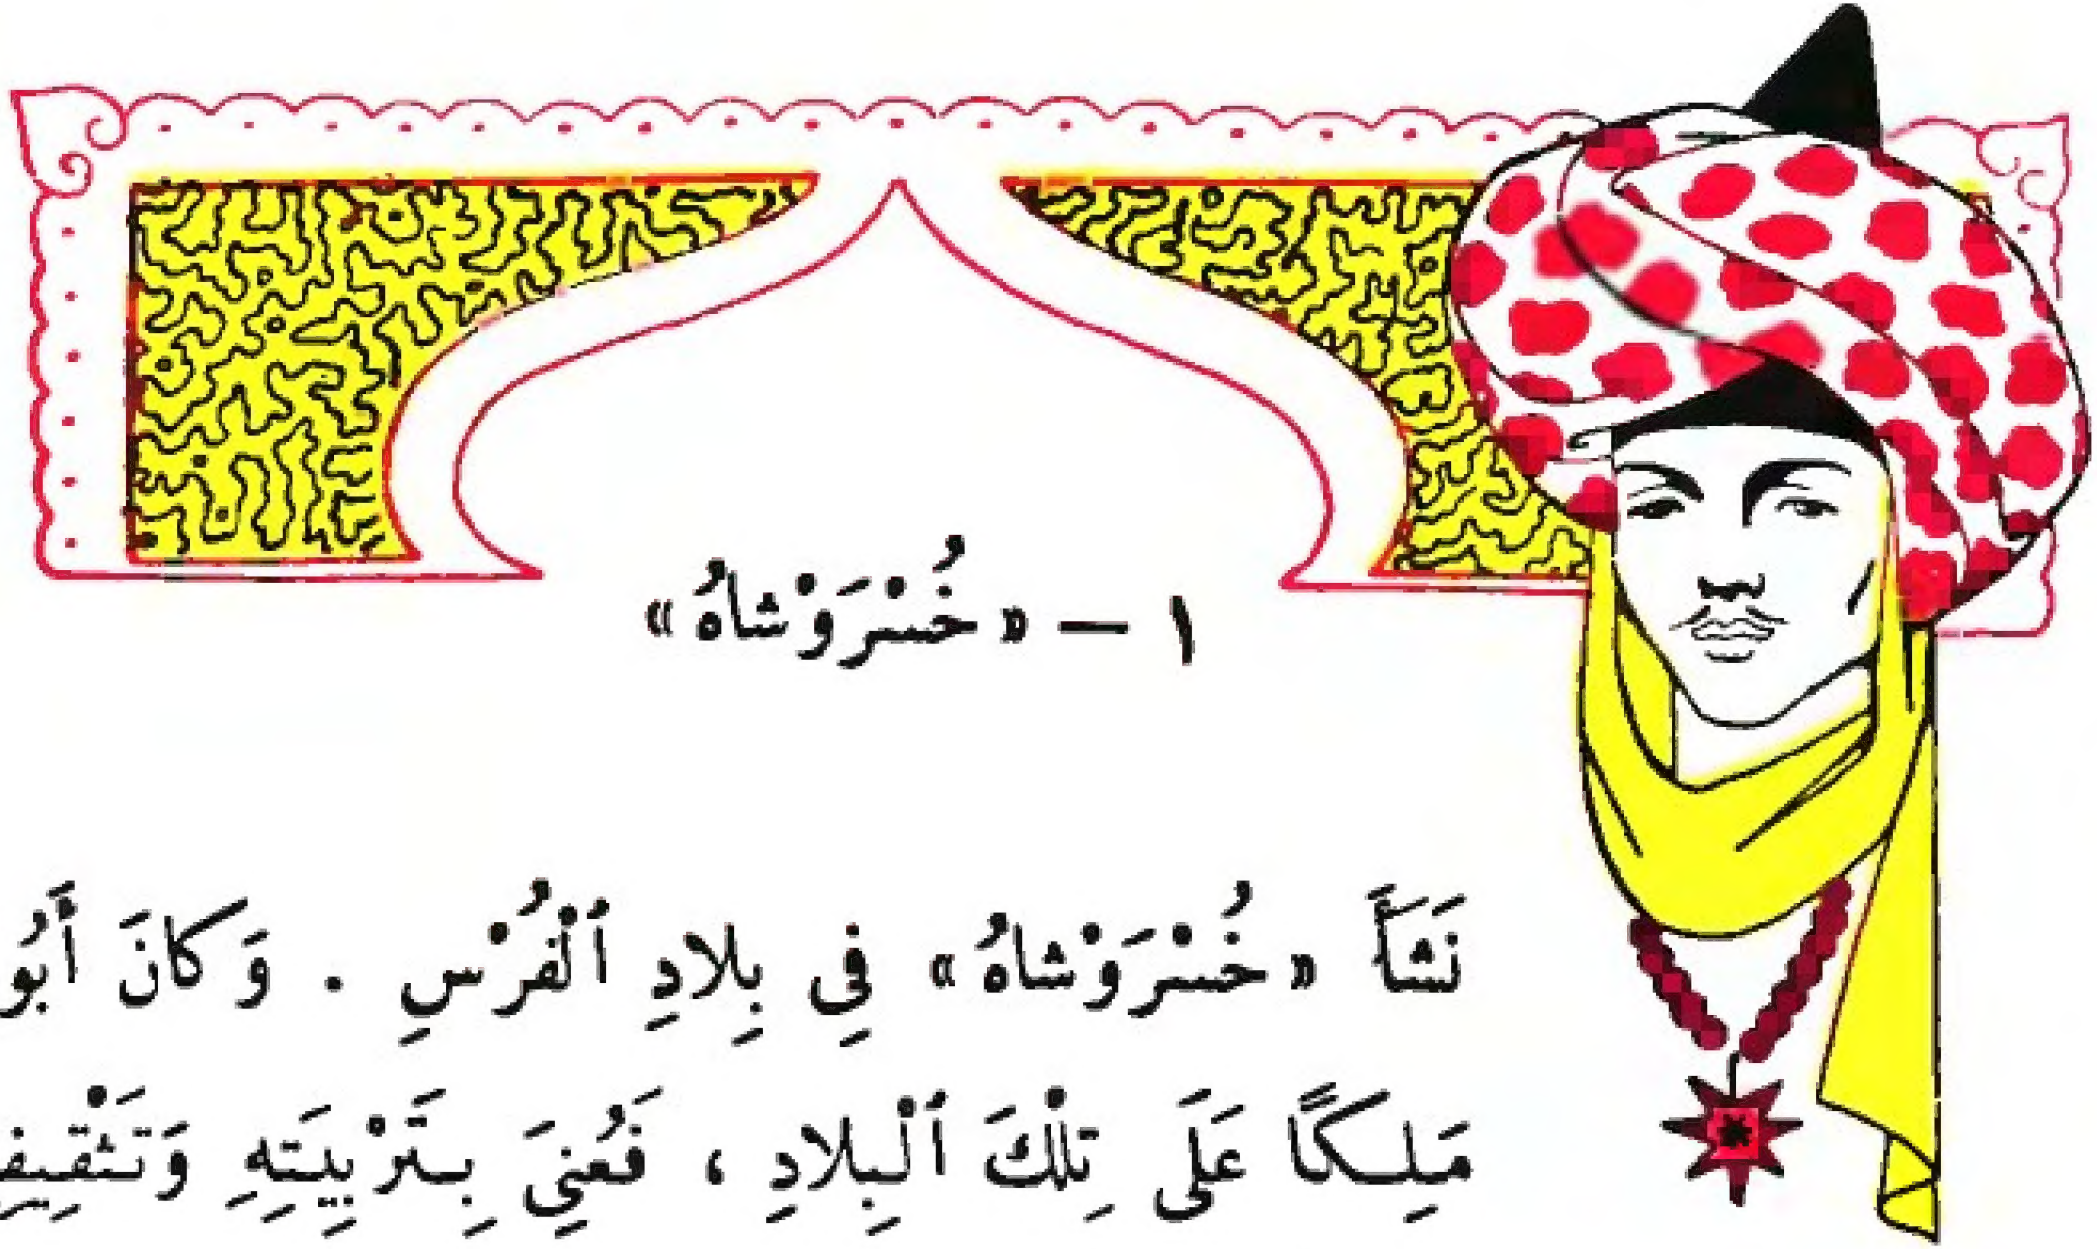 ١ – «خُسْرَوْشاهُ»
نَشَأَ «خُسْرَوْشاهُ» فِي بِلادِ ٱلْفُرْسِ . وَكانَ أَبُو
مَلِـكًا عَلَى تِلْكَ ٱلْبِلادِ ، فَعُنِيَ بِـتَرْبِيَتِهِ